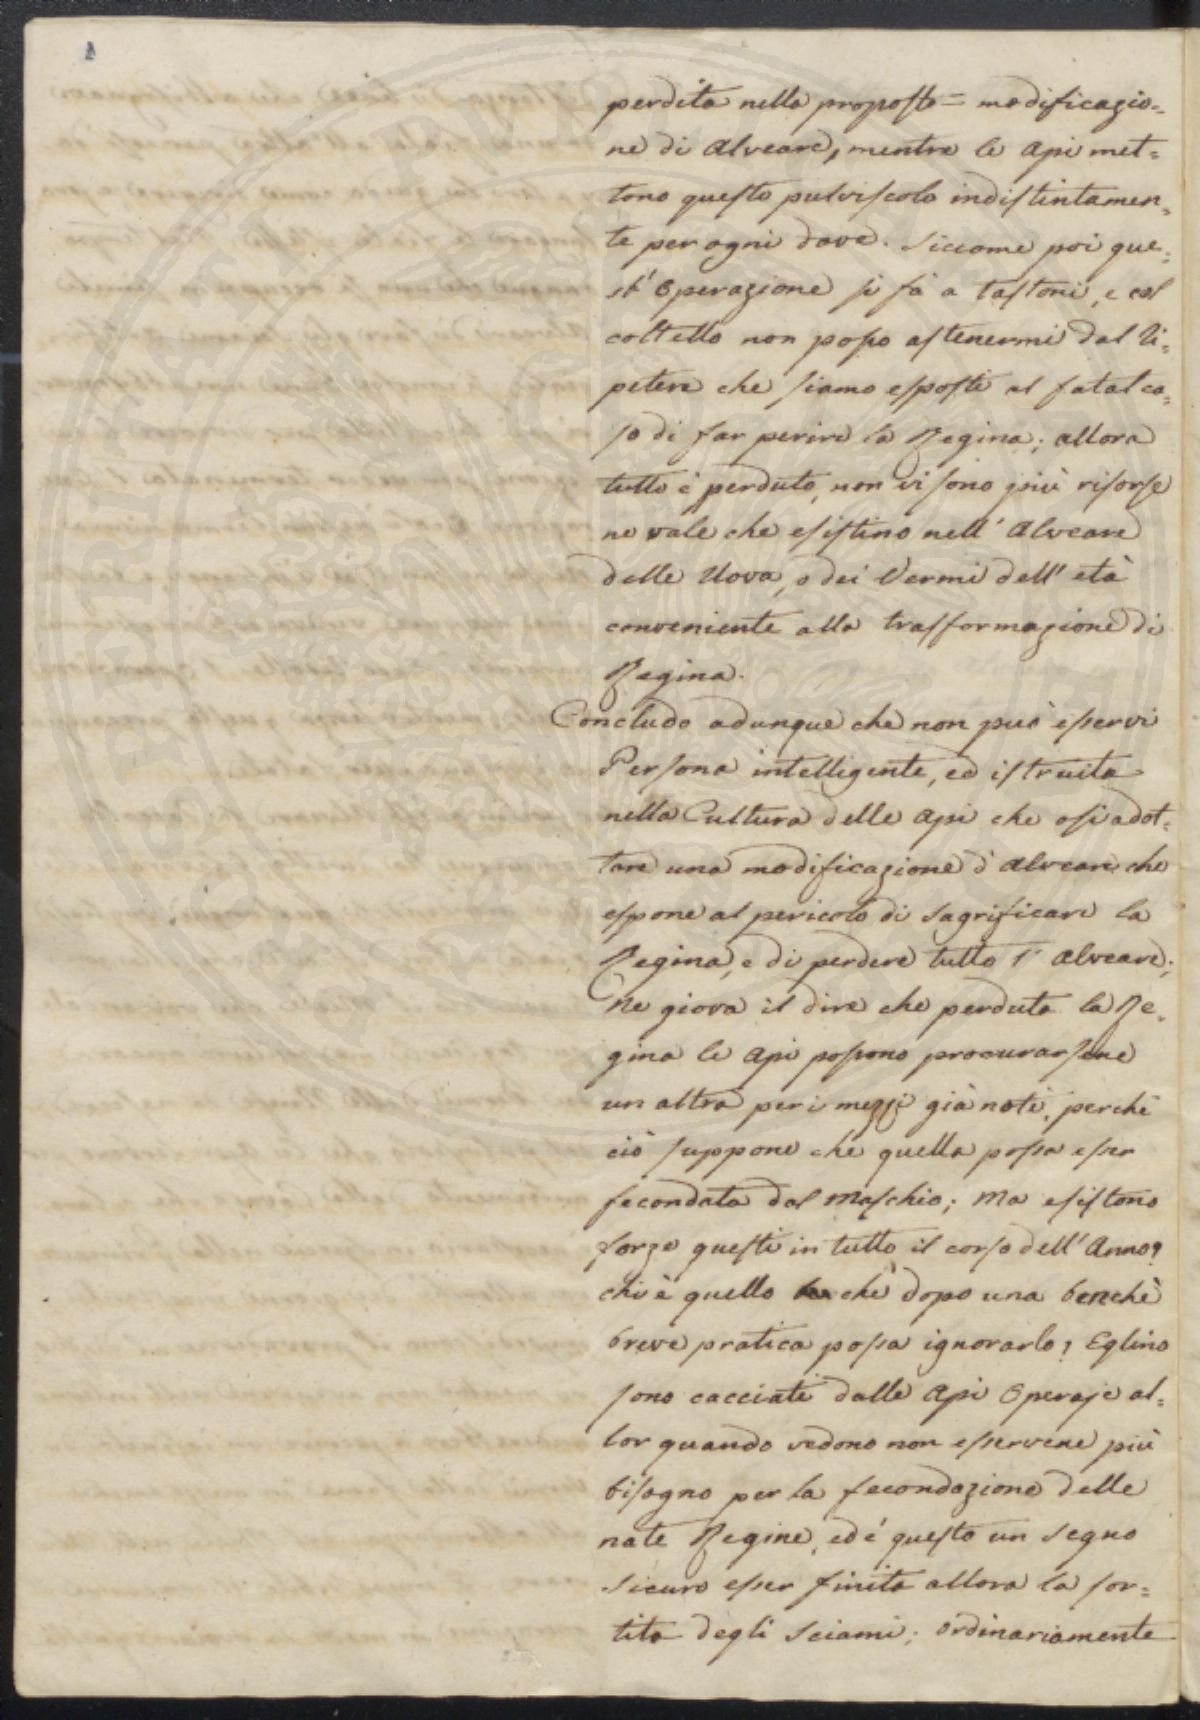 perdita nella proposta = modificazio=
ne di Alveare, mentre le Api met=
tono questo pulviscolo indistintamen=
te per ogni dove. Siccome poi que=
st' Operazione si fà a tastoni, e col
coltello non posso astenermi dal ri=
petere che siamo esposti al fatal ca=
so di far perire la Regina; allora
tutto è perduto, non vi sono più risorse
ne vale che esistino nell' Alveare
delle Uova, o dei Vermi dell' età
conveniente alla trasformazione di
Regina.
Concludo adunque che non può esservi
Persona intelligente, ed istruita
nella Cultura delle Api che osi adot=
tare una modificazione d' Alveare che
espone al pericolo di sagrificare la
Regina, e di perdere tutto l' Alveare;
Ne giova il dire che perduta la Re=
gina le Api possono procurarsene
un altra per i mezzi già noti, perchè
ciò suppone che quella possa esser
fecondata dal Maschio; Ma esistono
forze questi in tutto il corso dell' Anno?
chi è quello che dopo una benchè
breve pratica possa ignorarlo? Eglino
sono cacciati dalle Api Operaje al=
lor quando vedono non esservene più
bisogno per la fecondazione delle
nate Regine, ed è questo un segno
sicuro esser finita allora la sor=
tita degli Sciami; Ordinariamente